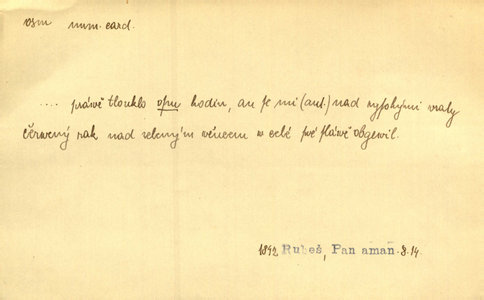 osm num. card.
.... právě tlouklo osm hodin, an se mi (aut.) nad wysokými wraty
čerwený rak nad zeleným wěncem w celé swé sláwě obgewil.
1842 Rubeš, Pan aman 8.14.